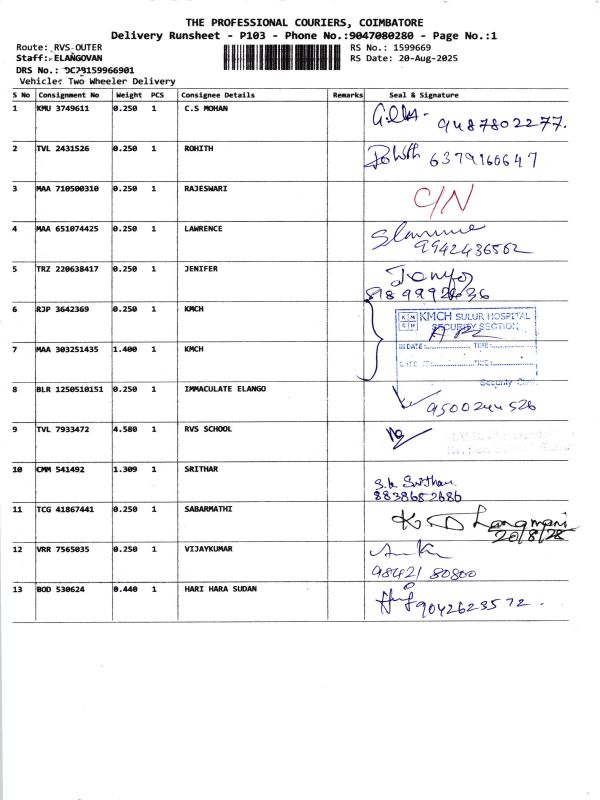 THE PROFESSIONAL COURIERS, COIMBATORE
Delivery Runsheet - P103 - Phone No.:9047080280 - Page No.:1
Route: RVS-OUTER RS No.: 1599669
Staff: ELANGOVAN RS Date: 20-Aug-2025
DRS No.: DC79159966901
Vehicle: Two Wheeler Delivery
S No Consignment No Weight PCS Consignee Details Remarks Seal & Signature
1 KMU 3749611 0.250 1 C.S MOHAN
9487802277.
2 TVL 2431526 0.250 1 ROHITH
Rohith 6379160647
3 MAA 710500310 0.250 1 RAJESWARI C/N
4 MAA 651074425 0.250 1 LAWRENCE
9942436562
5 TRZ 220638417 0.250 1 JENIFER
6 RJP 3642369 0.250 1 KMCH
KMCH SULUR HOSPITAL
SECURITY SECTION
IN DATE: TIME:
7 MAA 303251435 1.400 1 KMCH
TIME:
Security
8 BLR 1250510151 0.250 1 IMMACULATE ELANGO
9500244526
9 TVL 7933472 4.580 1 RVS SCHOOL
10 CMM 541492 1.309 1 SRITHAR
S.k Srithar
8838652686
11 TCG 41867441 0.250 1 SABARMATHI
20/8/25
12 VRR 7565035 0.250 1 VIJAYKUMAR
98421 80800
13 BOD 530624 0.440 1 HARI HARA SUDAN
9042623572.